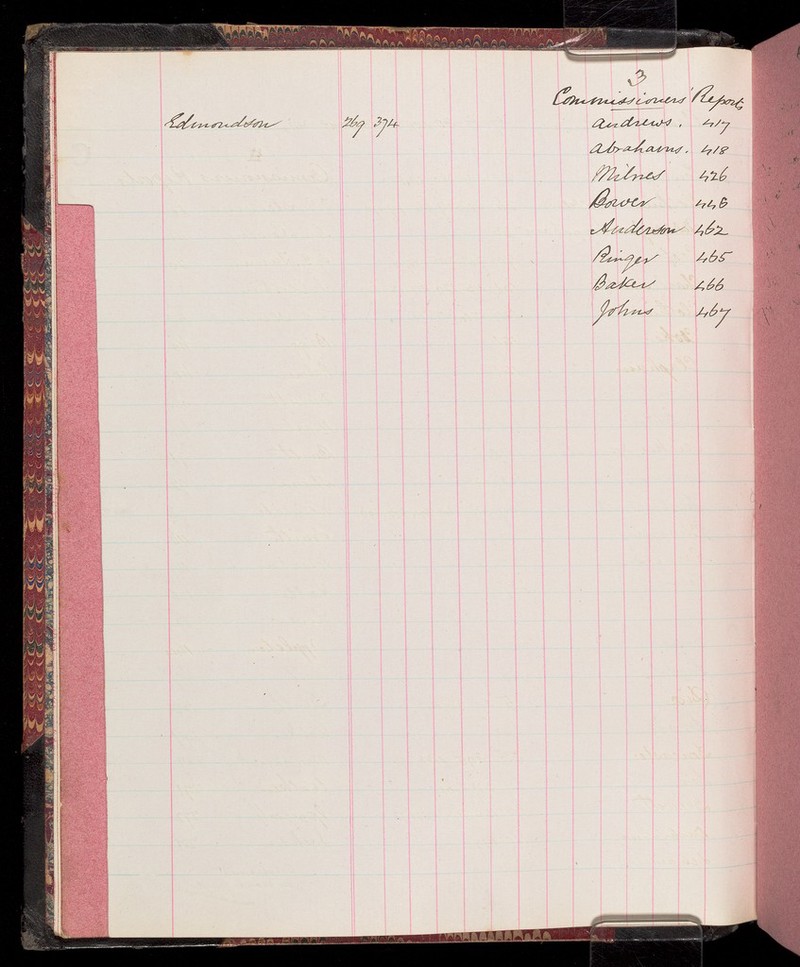 3
Commissioners' Reports
Edmondson 269 374 Andrews. 417
Abrahams. 418
Milnes 426
Bower 448
Anderson 462
Ringer 465
Baker 466
Johns 467